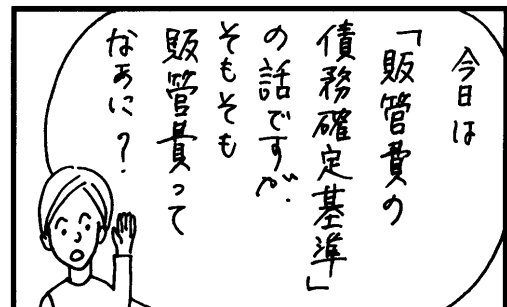 今日は
「販管費の
債務確定基準」
の話ですが、
そもそも
販管費って
なあに？